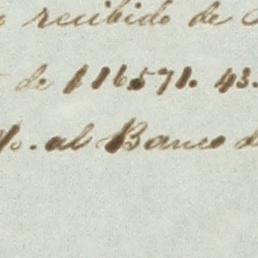 recibido de
de 116571. 43.
%. al Banco d